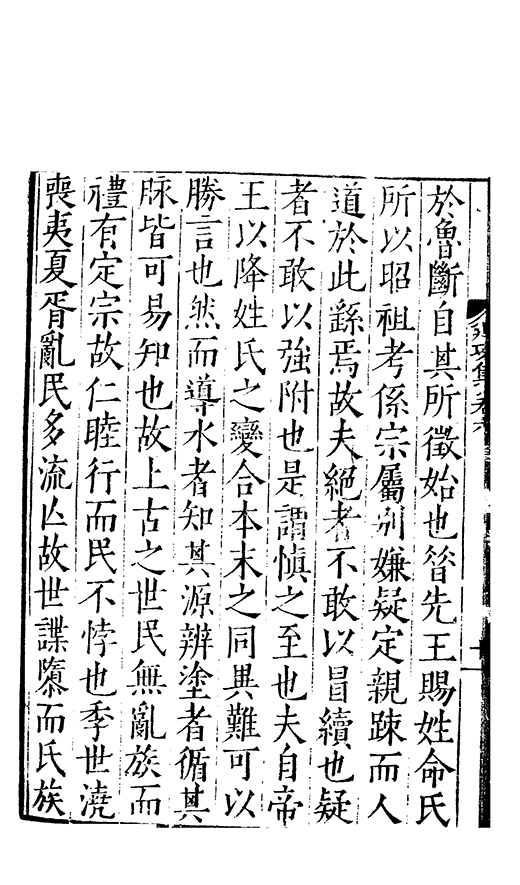 於魯斷自其所徵始也昝先王賜姓命氏
所以昭祖考係宗屬别嫌疑定親踈而人
道於此繇焉故夫絕者不敢以冒續也疑
者不敢以強附也是謂慎之至也夫自帝
王以降姓氏之變合本末之同異難可以
勝言也然而導水者知其源辨塗者循其
脉皆可易知也故上古之世民無亂族而
禮有定宗故仁睦行而民不悖也季世澆
喪夷夏胥亂民多流亾故世諜隳而氏族